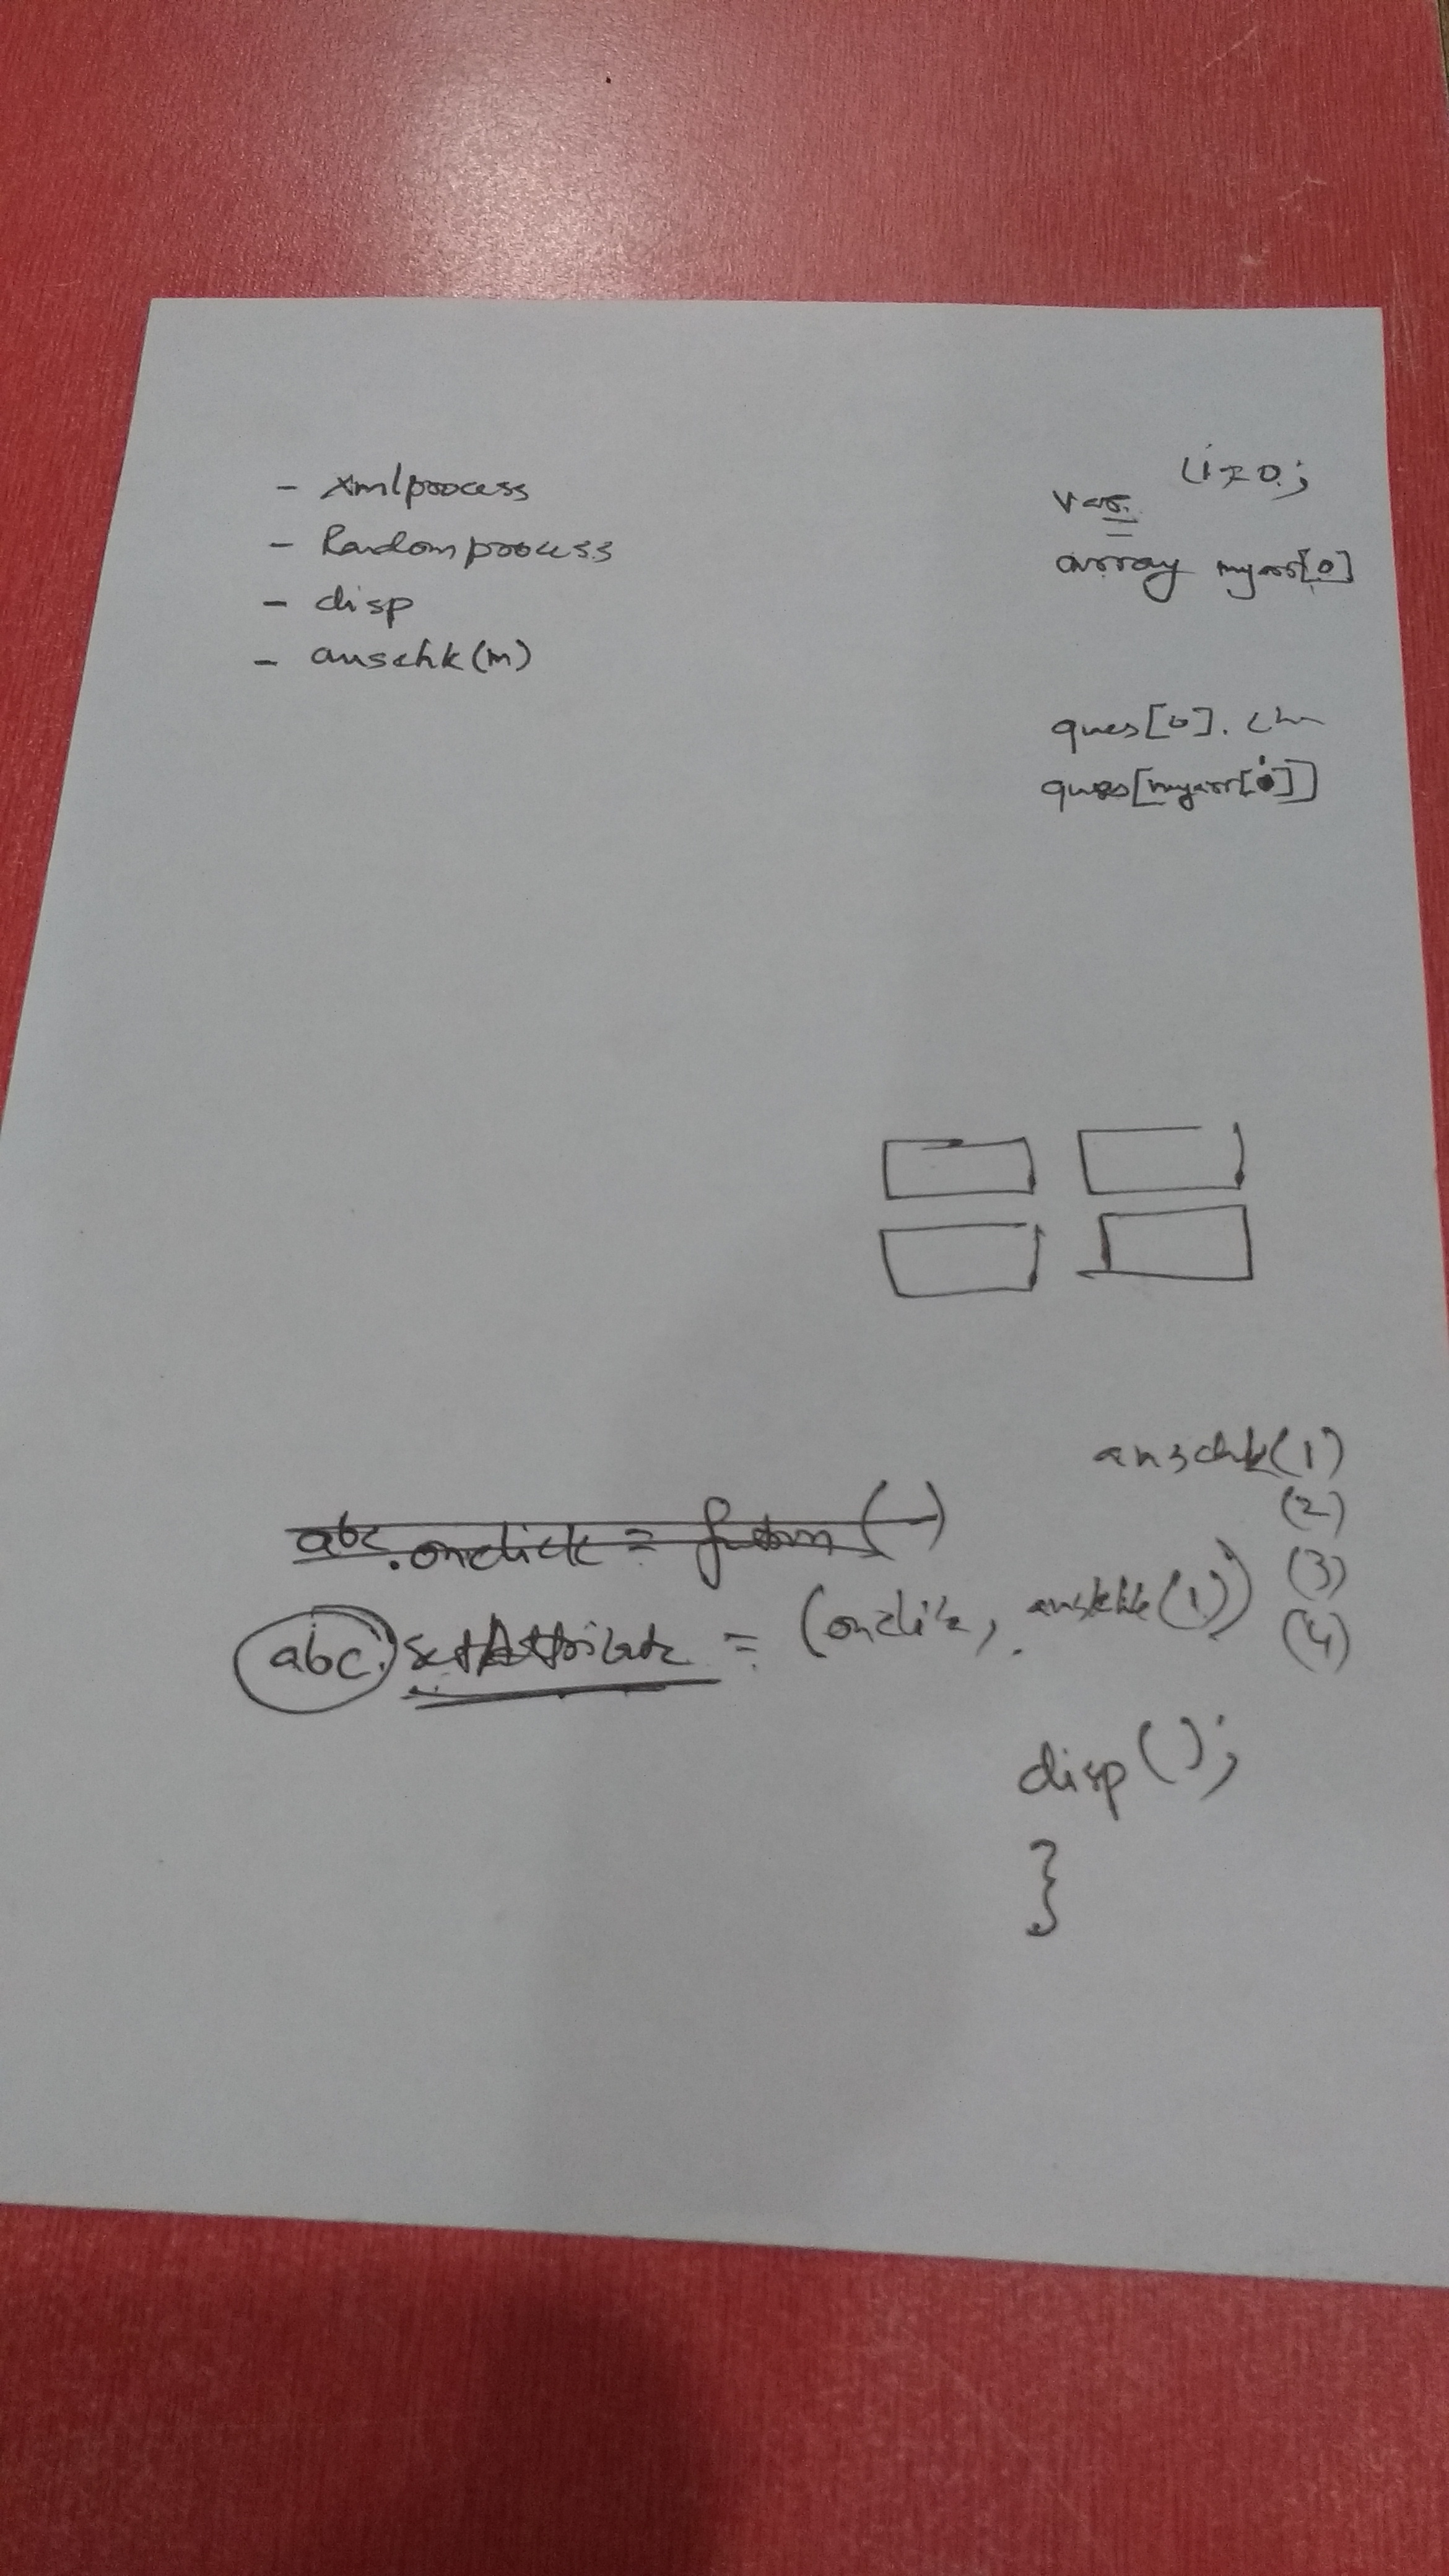 - xmlprocess
- Randomprocess
- disp
- anschk(m)
i=0;
var
array myarr[0]
ques[0].
ques[myarr[i]]
anschk(1)
(2)
(3)
(4)
abc.onclick = ( )
abc.setAttribute = (onclick, anschk(1))
disp();
}